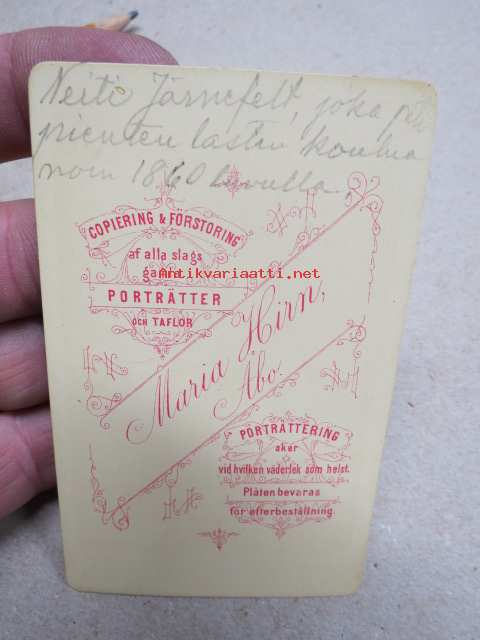 Neiti Järnefelt, joka piti
pienten lasten koulua
noin 1860 luvulla.
COPIERING & FÖRSTORING
af alla slags
PORTRÄTTER
OCH TAFLOR
Antikvariaatti.net
Maria Hirn,
Åbo.
PORTRÄTTERING
sker
vid hvilken väderlek som helst.
Plåten bevaras
för efterbeställning.